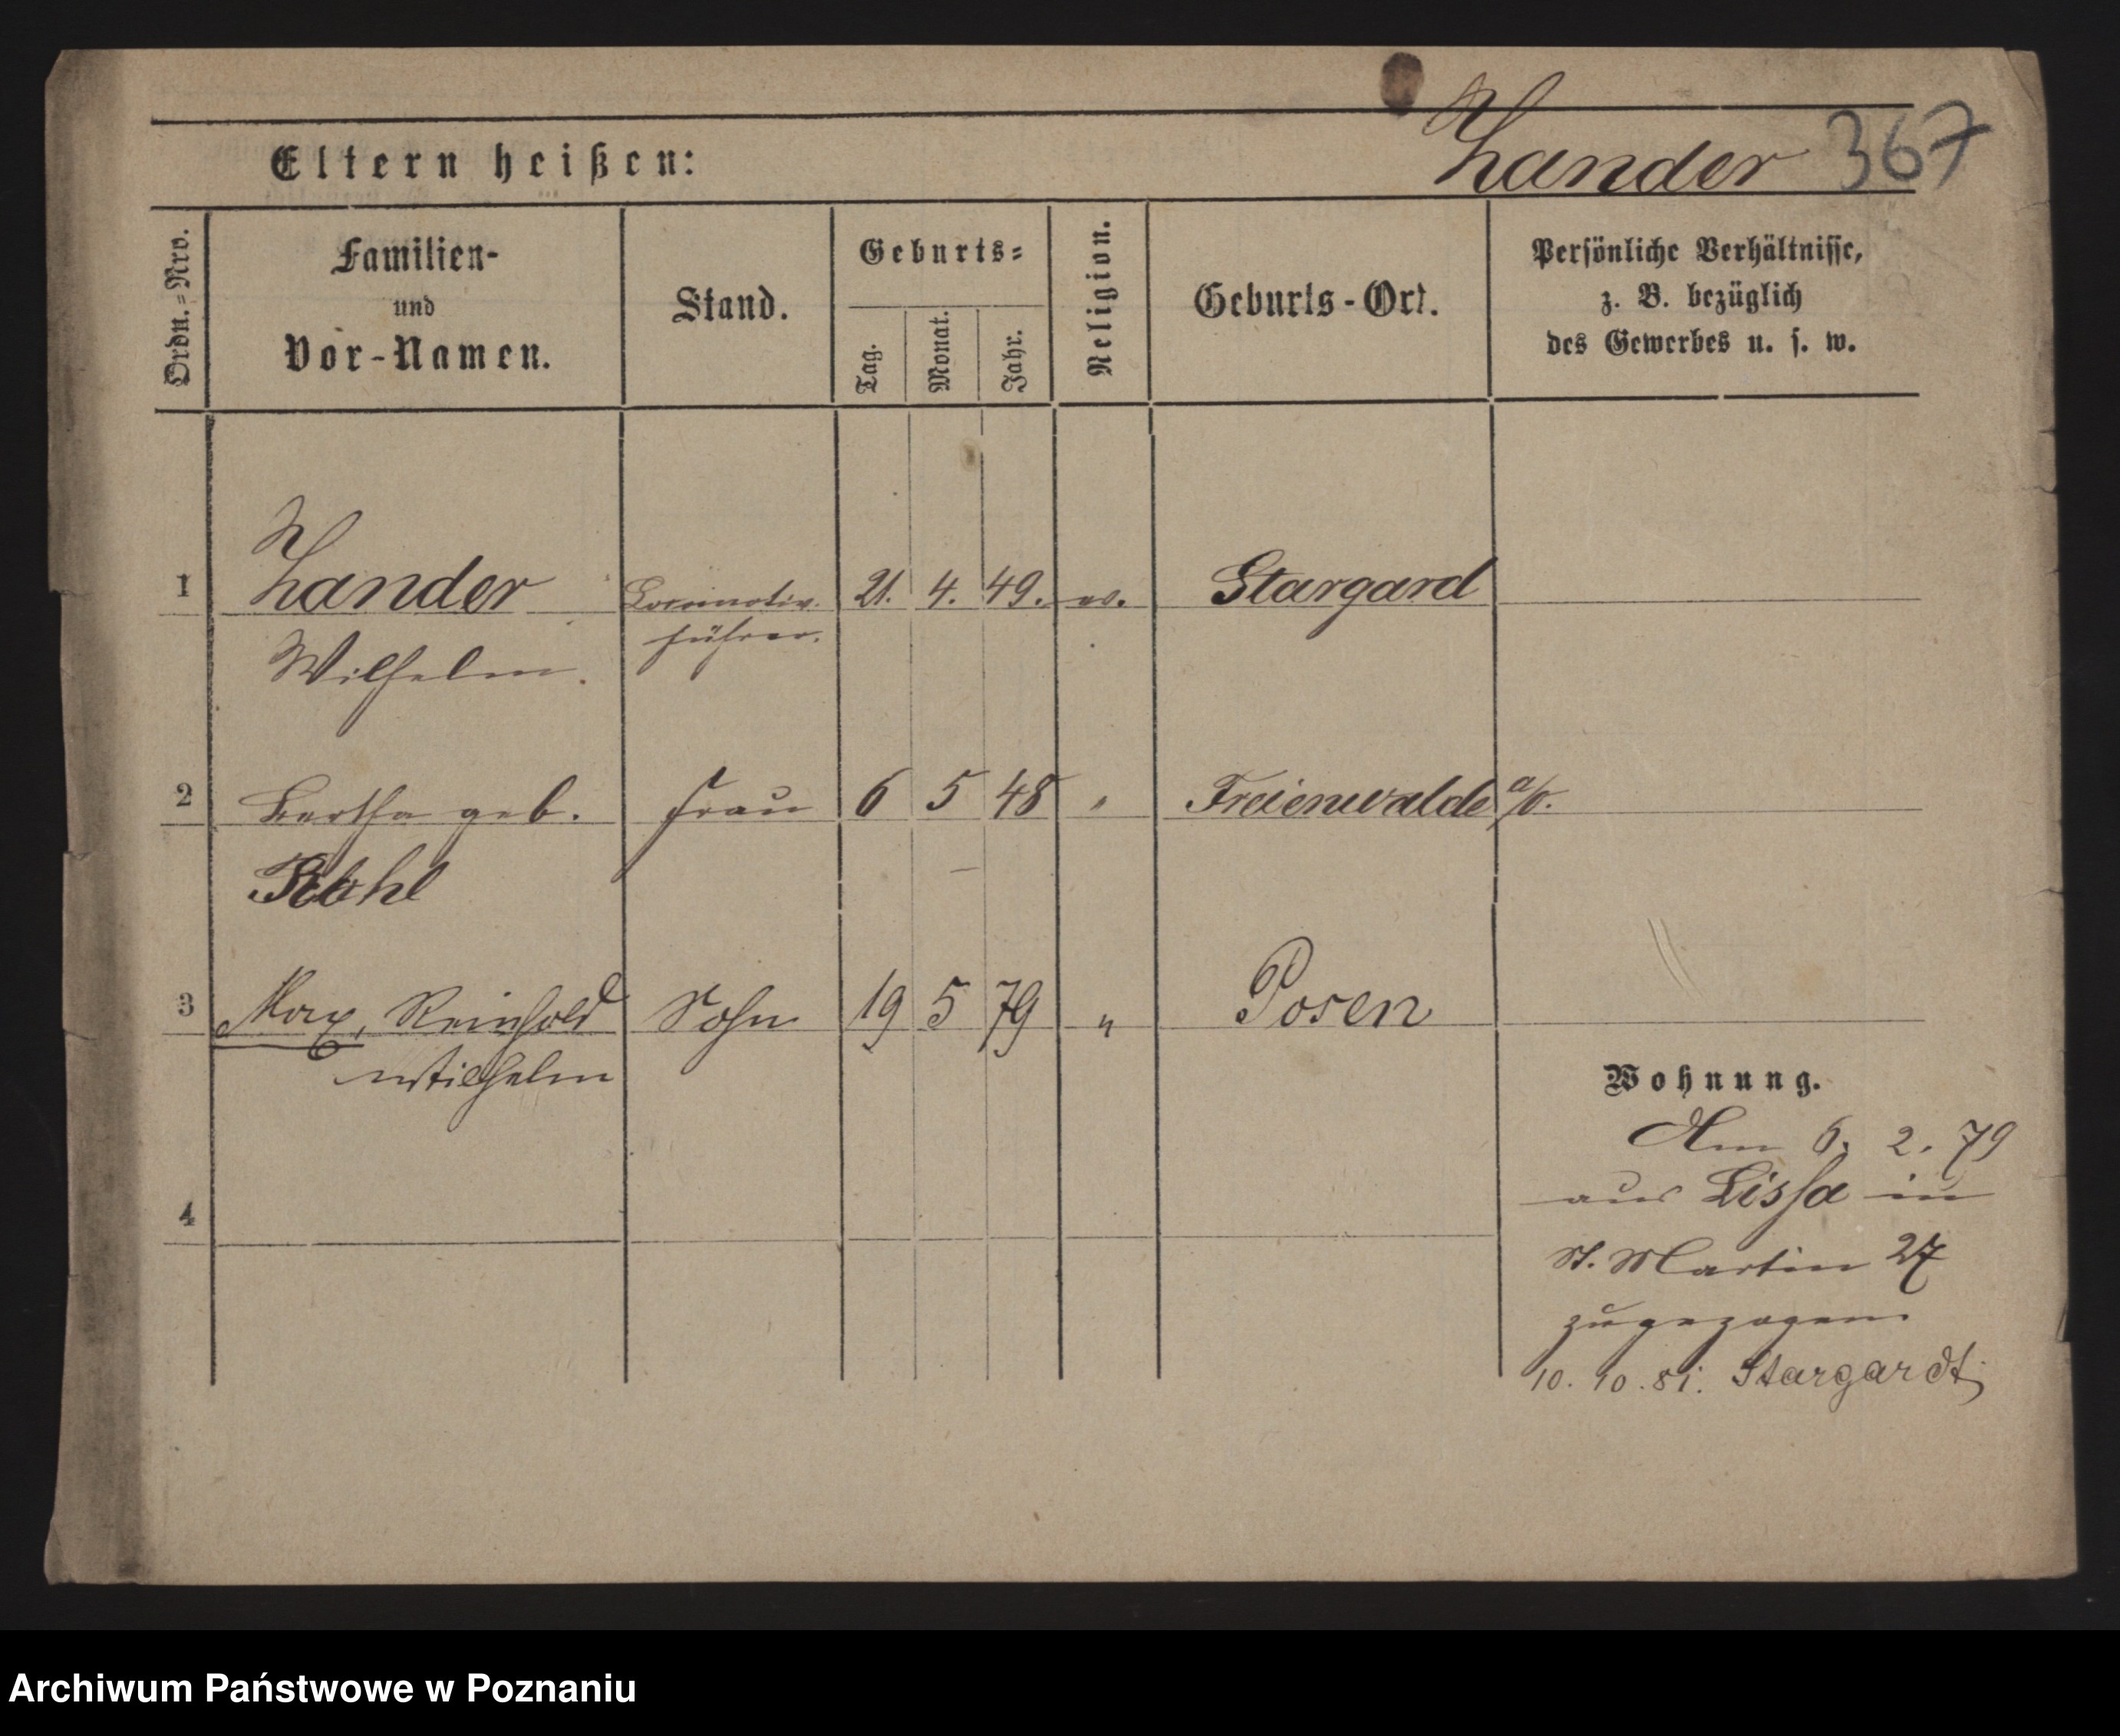 Zander 367
Eltern heißen:
Ordn.=Nro.
Familien-
und
Vor-Namen.
Stand.
Geburts=
Tag.
Monat.
Jahr.
Religion.
Geburts-Ort.
Persönliche Verhältnisse,
z. B. bezüglich
des Gewerbes u. s. w.
1 Zander Locomotiv. 21. 4. 49. ev. Stargard
führer.
Wilhelm.
2 Bertha geb. Frau 6 5 48 " Freienwalde a/O.
3 Max, Reinhold Sohn 19 5 79 " Posen
Wilhelm
Wohnung.
Am 6. 2. 79
aus Lissa in
St. Martin 27
zugezogen.
4
10. 10. 81. Stargardt
Archiwum Państwowe w Poznaniu